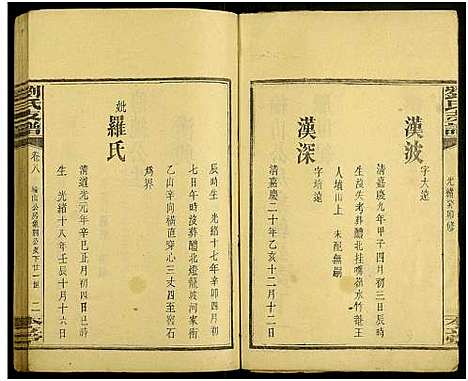 劉氏支譜
光緒癸卯修
漢波
字大遠
清嘉慶九年甲子四月初三日辰時
生沒失考葬醴北桂嘴嶺水竹菴王
人墳山上 未配無嗣
漢深
字靖遠
清嘉慶二十年乙亥十二月十二日
辰時生 光緒十七年辛卯四月初
七日午時沒葬醴北燈龍坡河家衝
乙山辛向橫直穿心三丈四至窖石
為界
妣
羅氏
清道光元年辛巳正月初四日
生 光緒十八年壬辰十月十六日
劉氏支譜
卷八